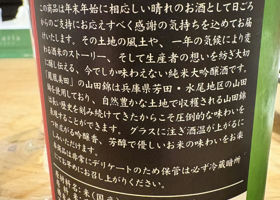 この商品は年末年始に相応しい晴れのお酒として日ごろ
からのご支持にお応えすべく感謝の気持ちを込めてお届
けいたします。その土地の風土や、一年の気候により変
わる酒米のストーリー、そして生産者の想いを紡ぎ大切
に醸し伝える、今でしか味わえない純米大吟醸酒です。
「鳳凰美田」の山田錦は兵庫県芳田・水尾地区の山田
錦を使用しており、自然豊かな土地で収穫される山田錦
は長い歴史を刻み続けてきたからこそ圧倒的な味わいを
表現することができます。グラスに注ぎ酒温が上がるに
つれ広がる吟醸香、芳醇で優しいお米の味わいをお楽
しみ下さい。
本商品は非常にデリケートのため保管は必ず冷蔵暗所
にてお早めにお召し上がりください。
原材料名：米（国産）